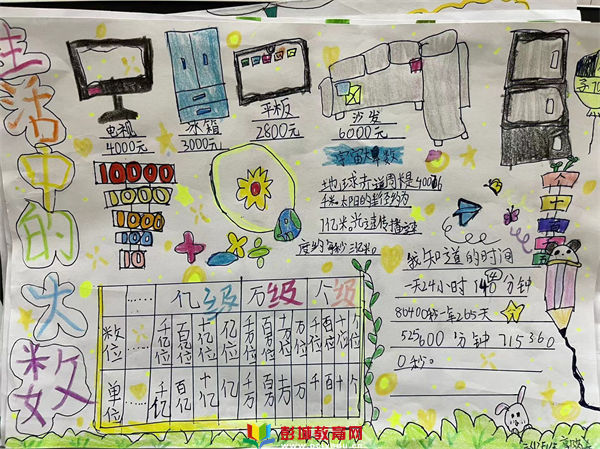 生活中的大数
电视
4000元
冰箱
3000元
平板
2800元
沙发
6000元
10000
1000
1000
100
10
宇宙大算数
地球赤道周长是40006
千米太阳的直径约为
我知道的时间
一天24小时 14 分钟
86400秒一年265天
525600分钟 715360
0秒。
…… 亿级 万级 个级
数位 …… 千亿位 百亿位 十亿位 亿位 千万位 百万位 十万位 万位 千位 百位 十位 个位
单位 …… 千亿 百亿 十亿 亿 千万 百万 十万 万 千 百 十 个
彭城教育网